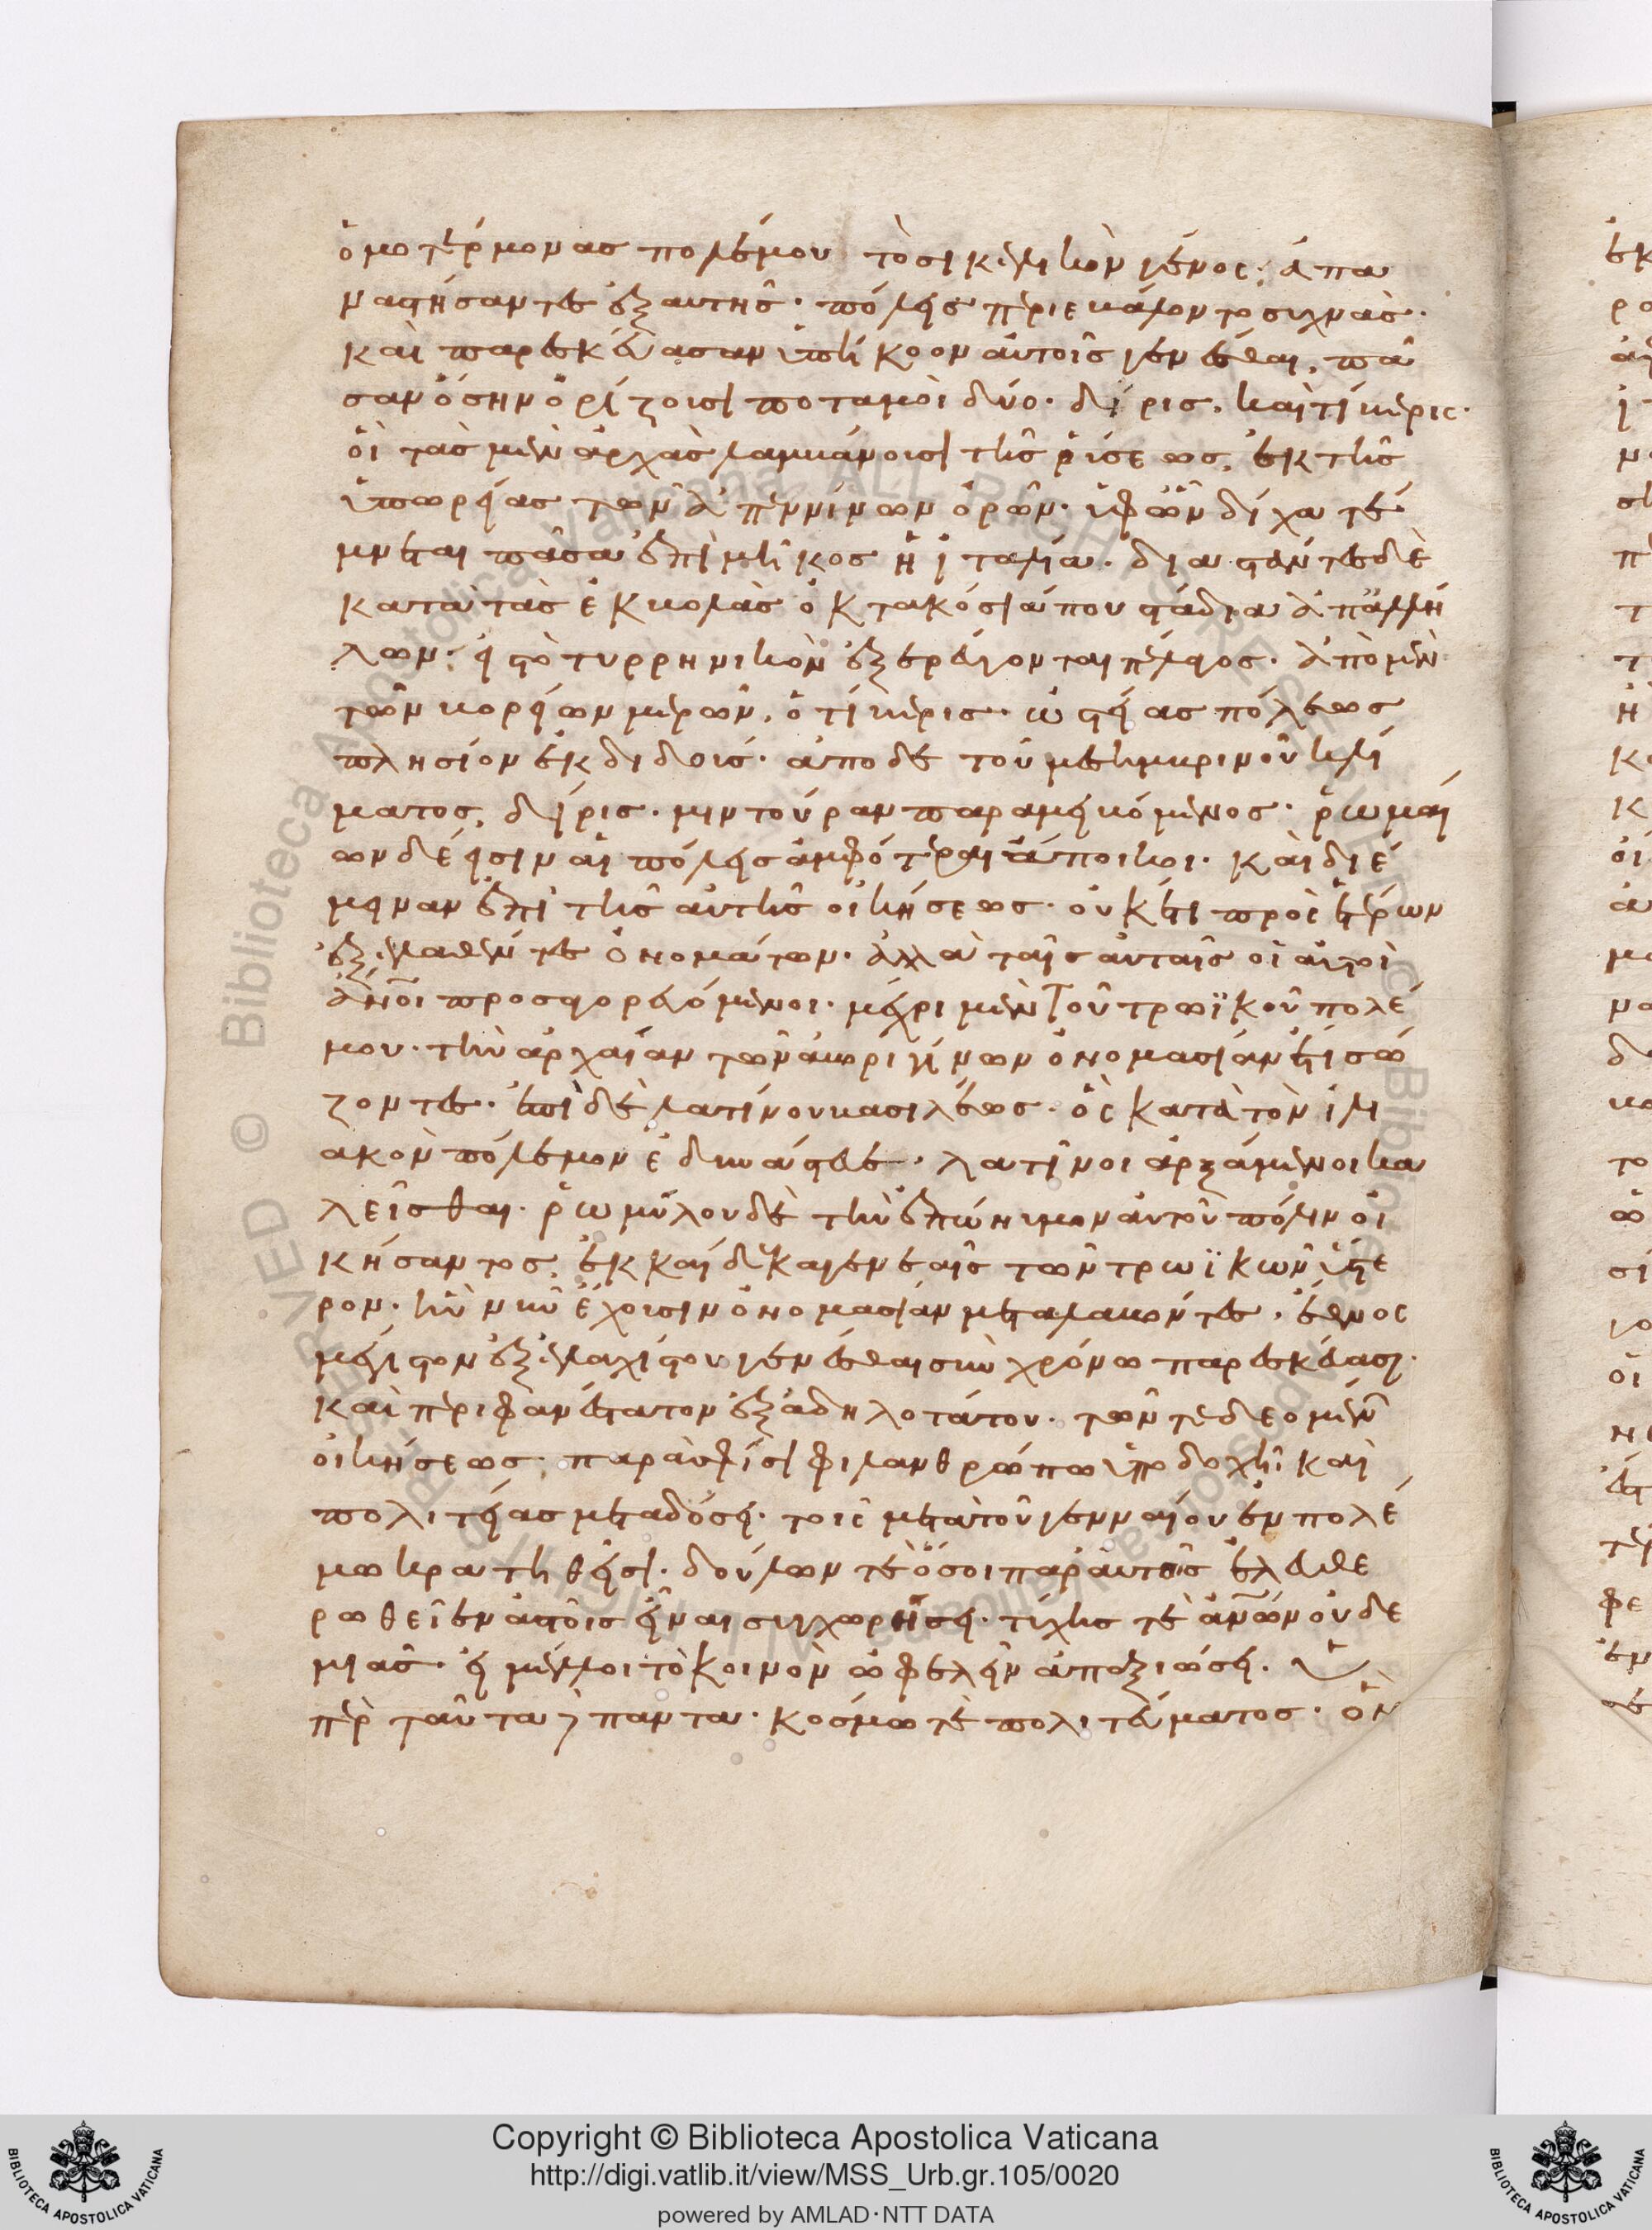 ὁμοτέρμονας πολέμου τὸ σικελικὸν γένος· ἀπα
ναστήσαντες ἐξ αὐτῆς· πόλεις περιεβάλοντο συχνὰς·
καὶ παρεσκεύασαν ὑπήκοον αὐτοῖς γενέσθαι, πᾶ
σαν ὅσην ὁρίζουσι ποταμοὶ δύο· λίρις, καὶ τίβερις·
οἳ τὰς μὲν ἀρχὰς λαμβάνουσι τῆς ῥύσεως, ἐκ τῆς
ὑπωρείας τῶν ἀπεννίνων ὀρῶν· ὑφ' ὧν δίχα τέ
μνεται πᾶσα ἐπὶ μῆκος ἡ ἰταλία· διαστάντες δὲ
κατὰ τὰς ἐκβολὰς ὀκτακόσιά που στάδια ἀπ' ἀλλή
λων· εἰς τὸ τυρρηνικὸν ἐξερεύγονται πέλαγος· ἀπὸ μὲν
τῶν βορείων μερῶν, ὁ τίβερις· ὠστείας πόλεως
πλησίον ἐκδιδούς· ἀπὸ δὲ τοῦ μεσημβρινοῦ κλί
ματος, λίρις· μιντούραν παραμειβόμενος· ῥωμαί
ων δέ εἰσιν αἱ πόλεις ἀμφότεραι ἄποικοι· καὶ διέ
μειναν ἐπὶ τῆς αὐτῆς οἰκήσεως· οὐκέτι πρὸς ἑτέρων
ἐξελαθέντες ὀνομάτων· ἀλλὰ ταῖς αὐταῖς οἱ αὐτοὶ
ἄν̅οι προσαγορευόμενοι· μέχρι μὲν τοῦ τρωϊκοῦ πολέ
μου· τὴν ἀρχαίαν τῶν ἀβοριγίνων ὀνομασίαν ἔτι σώ
ζοντες· ἐπὶ δὲ λατίνου βασιλέως· ὃς κατὰ τὸν ἰλι
ακὸν πόλεμον ἐδυνάστευε· λατῖνοι ἀρξάμενοι κα
λεῖσθαι· ῥωμύλου δὲ τὴν ἐπώνυμον αὐτοῦ πόλιν οἰ
κήσαντος, ἑκκαίδεκα γενεαῖς τῶν τρωϊκῶν ὕστε
ρον· ἣν νῦν ἔχουσιν ὀνομασίαν μεταλαβόντες· ἔθνος
μέγιστον ἐξ ἐλαχίστου γενέσθαι σὺν χρόνω παρεσκεύασαν·
καὶ περιφανέστατον ἐξ ἀδηλοτάτου· τῶν τε δεομένων
οἰκήσεως, παρὰ σφίσι φιλανθρώπω ὑποδοχῆ· καὶ
πολιτείας μεταδόσει· τοῖς μετὰ τοῦ γενναίου ἐν πολέ
μω κρατηθεῖσι· δούλων τε ὅσοι παρ' αὐτοῖς ἐλευθε
ρωθεῖεν ἀστοῖς εἶναι συγχωρήσει· τύχης τε ἀν̅ων οὐδε
μιᾶς· εἰ μέλλοι τὸ κοινὸν ὠφελεῖν ἀπαξιώσει· ὑ
πὲρ ταῦτα δὲ πάντα· κόσμω τε πολιτεύματος· ὃν